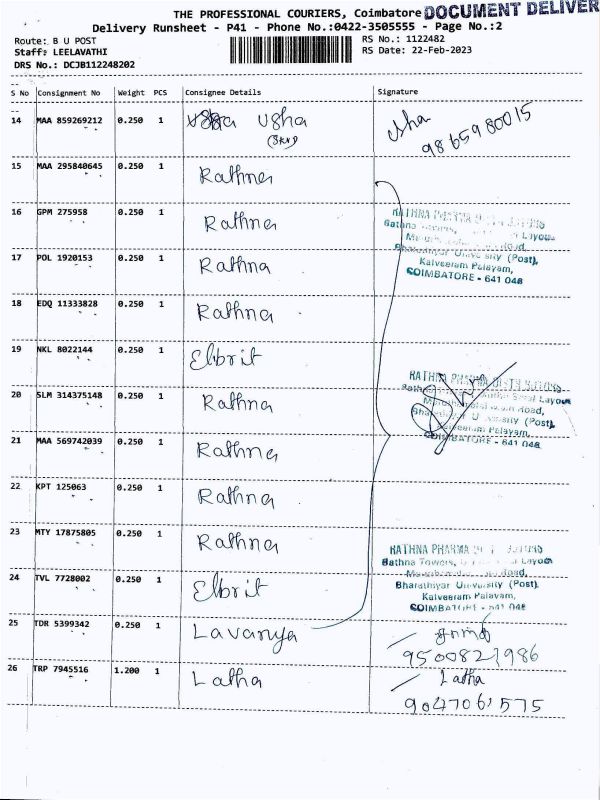 THE PROFESSIONAL COURIERS, Coimbatore DOCUMENT DELIVER
Delivery Runsheet - P41 - Phone No.:0422-3505555 - Page No.:2
Route: B U POST RS No.: 1122482
Staff: LEELAVATHI RS Date: 22-Feb-2023
DRS No.: DCJB112248202
S No Consignment No Weight PCS Consignee Details Signature
14 MAA 859269212 0.250 1 Usha Usha
9865980015
15 MAA 295840645 0.250 1 Rathna
16 GPM 275958 0.250 1 Rathna
17 POL 1920153 0.250 1 Rathna
18 EDQ 11333828 0.250 1 Rathna
19 NKL 8022144 0.250 1 Elbrit
20 SLM 314375148 0.250 1 Rathna
21 MAA 569742039 0.250 1 Rathna
22 KPT 125063 0.250 1 Rathna
23 MTY 17875805 0.250 1 Rathna
24 TVL 7728002 0.250 1 Elbrit
25 TDR 5399342 0.250 1 Lavanya
9500823986
26 TRP 7945516 1.200 1 Latha Latha
9047061575
RATHNA PHARMA
Rathna Towers, Layout
Road,
Bharathiyar University (Post),
Kalveeram Palayam,
COIMBATORE - 641 046
RATHNA PHARMA
Layout
Road,
University (Post),
Palayam,
COIMBATORE - 641 046
RATHNA PHARMA
Rathna Towers, Layout
Road,
Bharathiyar University (Post)
Kalveeram Palayam,
COIMBATORE - 641 046